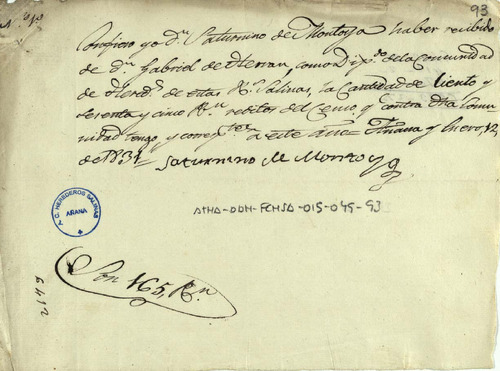 93
Confieso yo Dn. Saturnino de Montoya haber recibido
de Dn. Gabriel de Herran, como Dip.do de la Comunidad
de Hered.s de estas Rs. Salinas, la cantidad de ciento y
sesenta y cinco Rn. reditos del Censo, q. contra dha Comu
nidad tengo, y corresp.tes a este año Añana y Enero, 12,
de 1831 Saturnino de Montoya
A.C. HEREDEROS SALINAS
AÑANA
ATHA-DDH-FCHSA-015-045-93
Son 165, Rn.